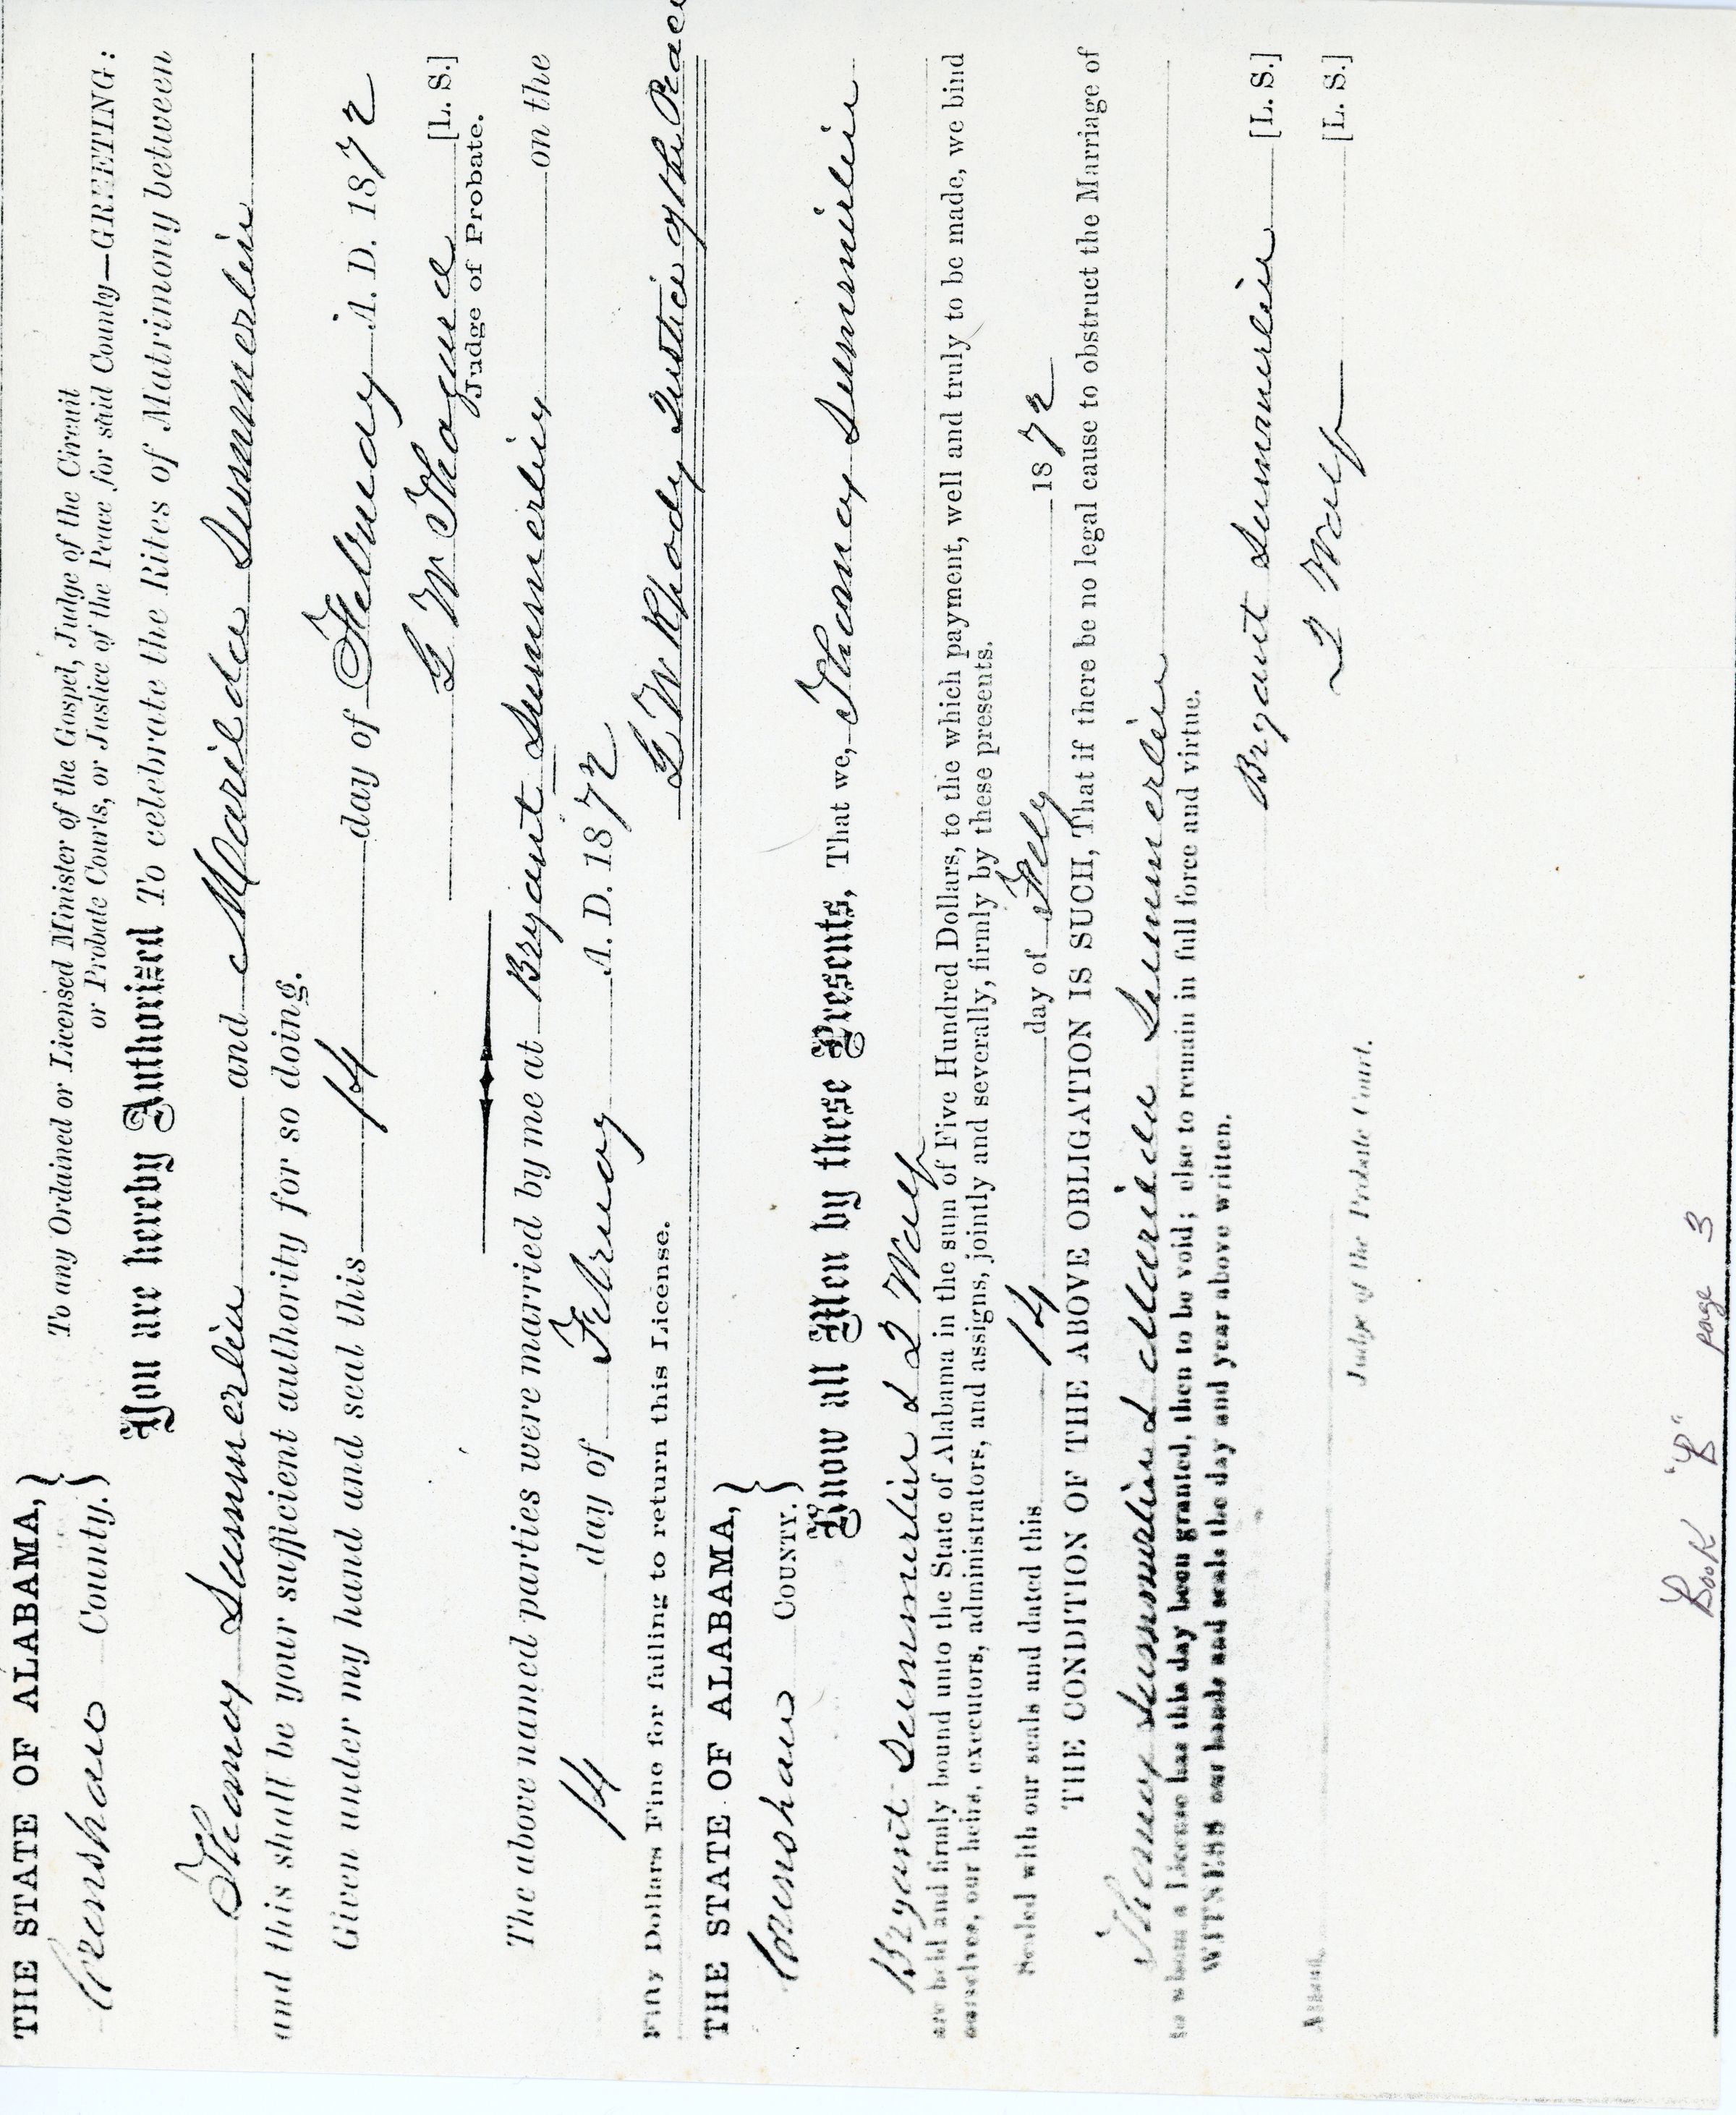 THE STATE OF ALABAMA,}
Crenshaw County.}
To any Ordained or Licensed Minister of the Gospel, Judge of the Circuit
or Probate Courts, or Justice of the Peace for said County—GREETING:
You are hereby Authorized To celebrate the Rites of Matrimony between
Thomas Summerlin and Marilda Summerlin
and this shall be your sufficient authority for so doing.
Given under my hand and seal this 14 day of February A. D. 1872
G W Thagard [L. S.]
Judge of Probate.
The above named parties were married by me at Bryant Summerlin on the
14 day of February A. D. 1872
G W Rhody Justice of the Peace
Fifty Dollars Fine for failing to return this License.
THE STATE OF ALABAMA,}
Crenshaw COUNTY.}
Know all Men by these Presents, That we, Thomas Summerlin
Bryant Summerlin & J Walp
are held and firmly bound unto the State of Alabama in the sum of Five Hundred Dollars, to the which payment, well and truly to be made, we bind
ourselves, our heirs, executors, administrators, and assigns, jointly and severally, firmly by these presents.
Sealed with our seals and dated this 14 day of Feby 1872
THE CONDITION OF THE ABOVE OBLIGATION IS SUCH, That if there be no legal cause to obstruct the Marriage of
Thomas Summerlin & Marilda Summerlin
to whom a License has this day been granted, then to be void; else to remain in full force and virtue.
WITNESS our hands and seals the day and year above written.
Bryant Summerlin [L. S.]
Attest, J Walp [L. S.]
Judge of the Probate Court.
Book "B" page 3